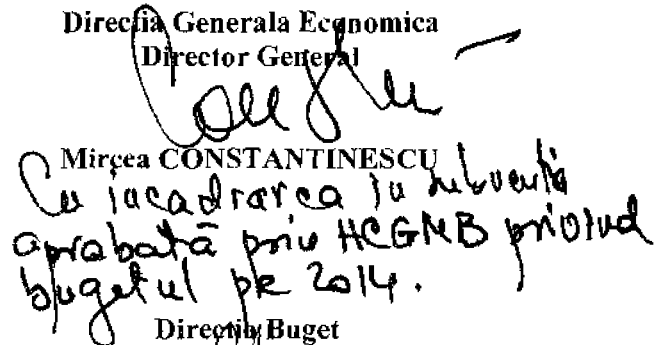 Direcția Generala Economica
Director General
Mircea CONSTANTINESCU
Cu incadrarea in subvenția
aprobată prin HCGMB privind
bugetul pe 2014.
Direcția Buget